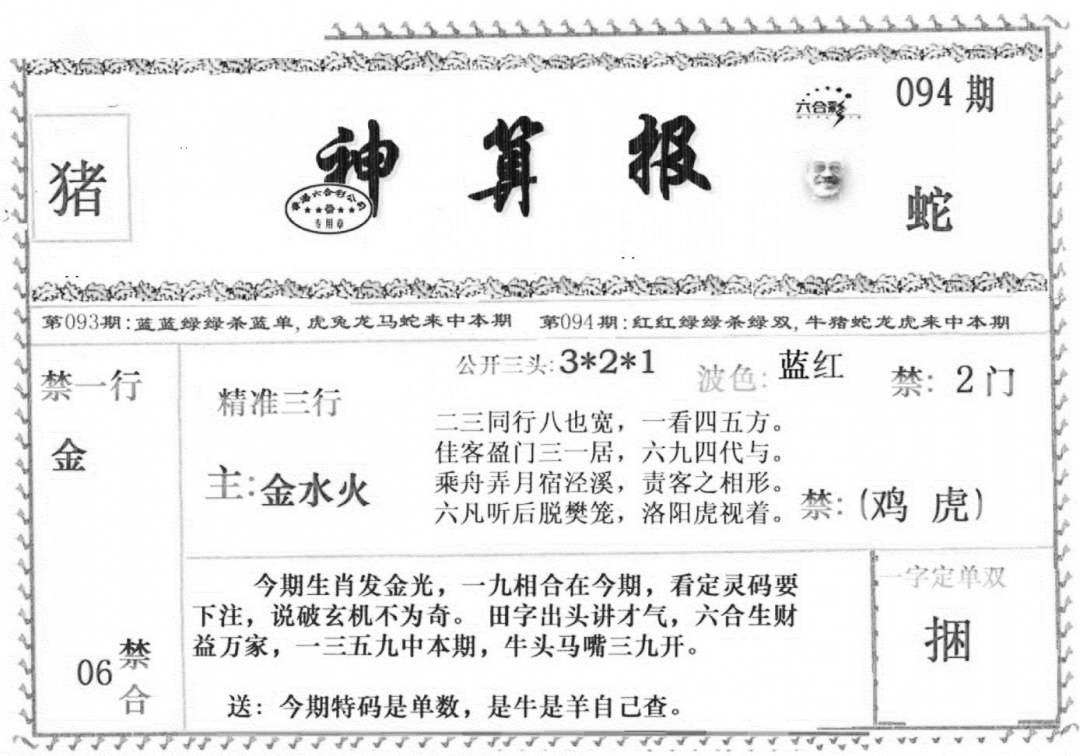 094期
六合彩
猪
神算报
香港六合彩公司
专用章
蛇
第093期:蓝蓝绿绿杀蓝单,虎兔龙马蛇来中本期 第094期:红红绿绿杀绿双,牛猪蛇龙虎来中本期
禁一行
金
06禁合
精准三行
主:金水火
公开三头:3*2*1
波色:蓝红
禁:2门
二三同行八也宽，一看四五方。
佳客盈门三一居，六九四代与。
乘舟弄月宿泾溪，责客之相形。
六凡听后脱樊笼，洛阳虎视着。
禁:(鸡 虎)
今期生肖发金光，一九相合在今期，看定灵码要
下注，说破玄机不为奇。田字出头讲才气，六合生财
益万家，一三五九中本期，牛头马嘴三九开。
送：今期特码是单数，是牛是羊自己查。
一字定单双
捆